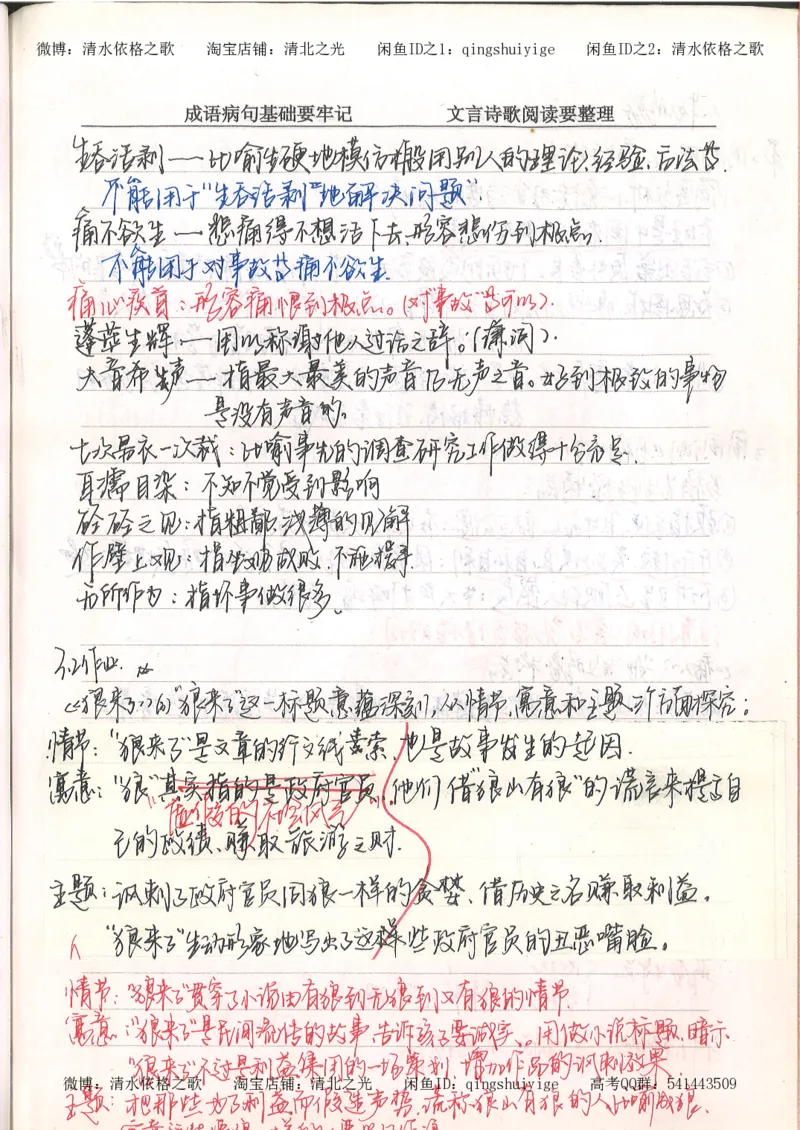 微博：清水依格之歌 淘宝店铺：清北之光 闲鱼ID之1：qingshuiyige 闲鱼ID之2：清水依格之歌
成语病句基础要牢记 文言诗歌阅读要整理
生吞活剥——比喻生硬地模仿搬用别人的理论、经验、方法等.
不能用于“生吞活剥”地解决问题”.
痛不欲生——悲痛得不想活下去,形容悲伤到极点.
不能用于对事故等痛不欲生.
痛心疾首：形容痛恨到极点。(对“事故”等可以).
蓬荜生辉:——用以称谢他人过访之辞。(谦词).
大音希声——指最大最美的声音乃无声之音。好到极致的事物
是没有声音的。
七次量衣一次裁：比喻事先的调查研究工作做得十分充足.
耳濡目染：不知不觉受到影响
硁硁之见:指粗鄙、浅薄的见解
作壁上观：指坐观成败.不施援手
无所作为：指坏事做很多。
3.2作业.
《狼来了》的“狼来了”这一标题意蕴深刻，从情节，寓意和主题三个方面探究：
情节：“狼来了”是文章的行文线索,也是故事发生的起因.
寓意：“狼”其实指的是政府官员,他们借“狼山有狼”的谎言来提高自
己的政绩、赚取旅游之财.
主题：讽刺了政府官员同狼一样的贪婪、借历史之名赚取利益。
“狼来了”生动形象地写出了这样些政府官员的丑恶嘴脸。
情节：“狼来了”贯穿了小说由有狼到无狼到又有狼的情节.
寓意：“狼来了”是民间流传的故事,告诉孩子要诚实、。用做小说标题,暗示
“狼来了”不过是利益集团的一场策划 增加作品的讽刺效果
微博：清水依格之歌 淘宝店铺：清北之光 闲鱼ID：qingshuiyige 高考QQ群：541443509
主题：把那些为了利益而假造声势,谎称狼山有狼的人比喻成狼,